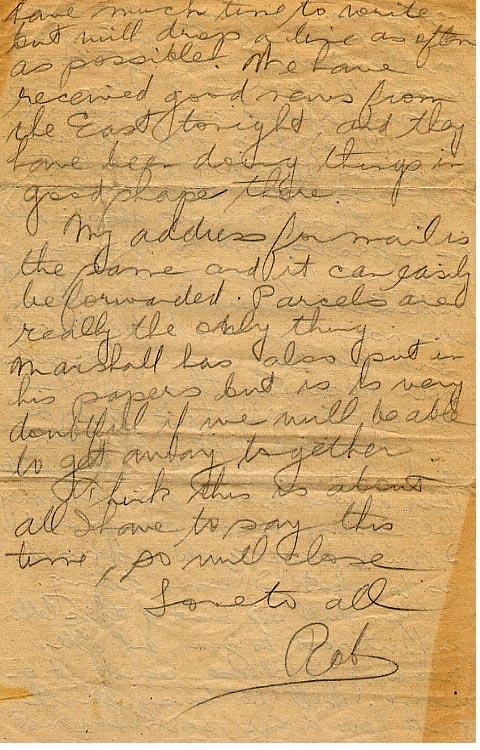 have much time to write
but will drop a line as often
as possible. We have
received good news from
the East tonight, and they
have been doing things in
good shape there.
My address for mail is
the same and it can easily
be forwarded. Parcels are
really the only thing.
Marshall has also put in
his papers but is is very
doubtful if we will be able
to get away together.
I think this is about
all I have to say this
time, so will close
Love to all
Rob